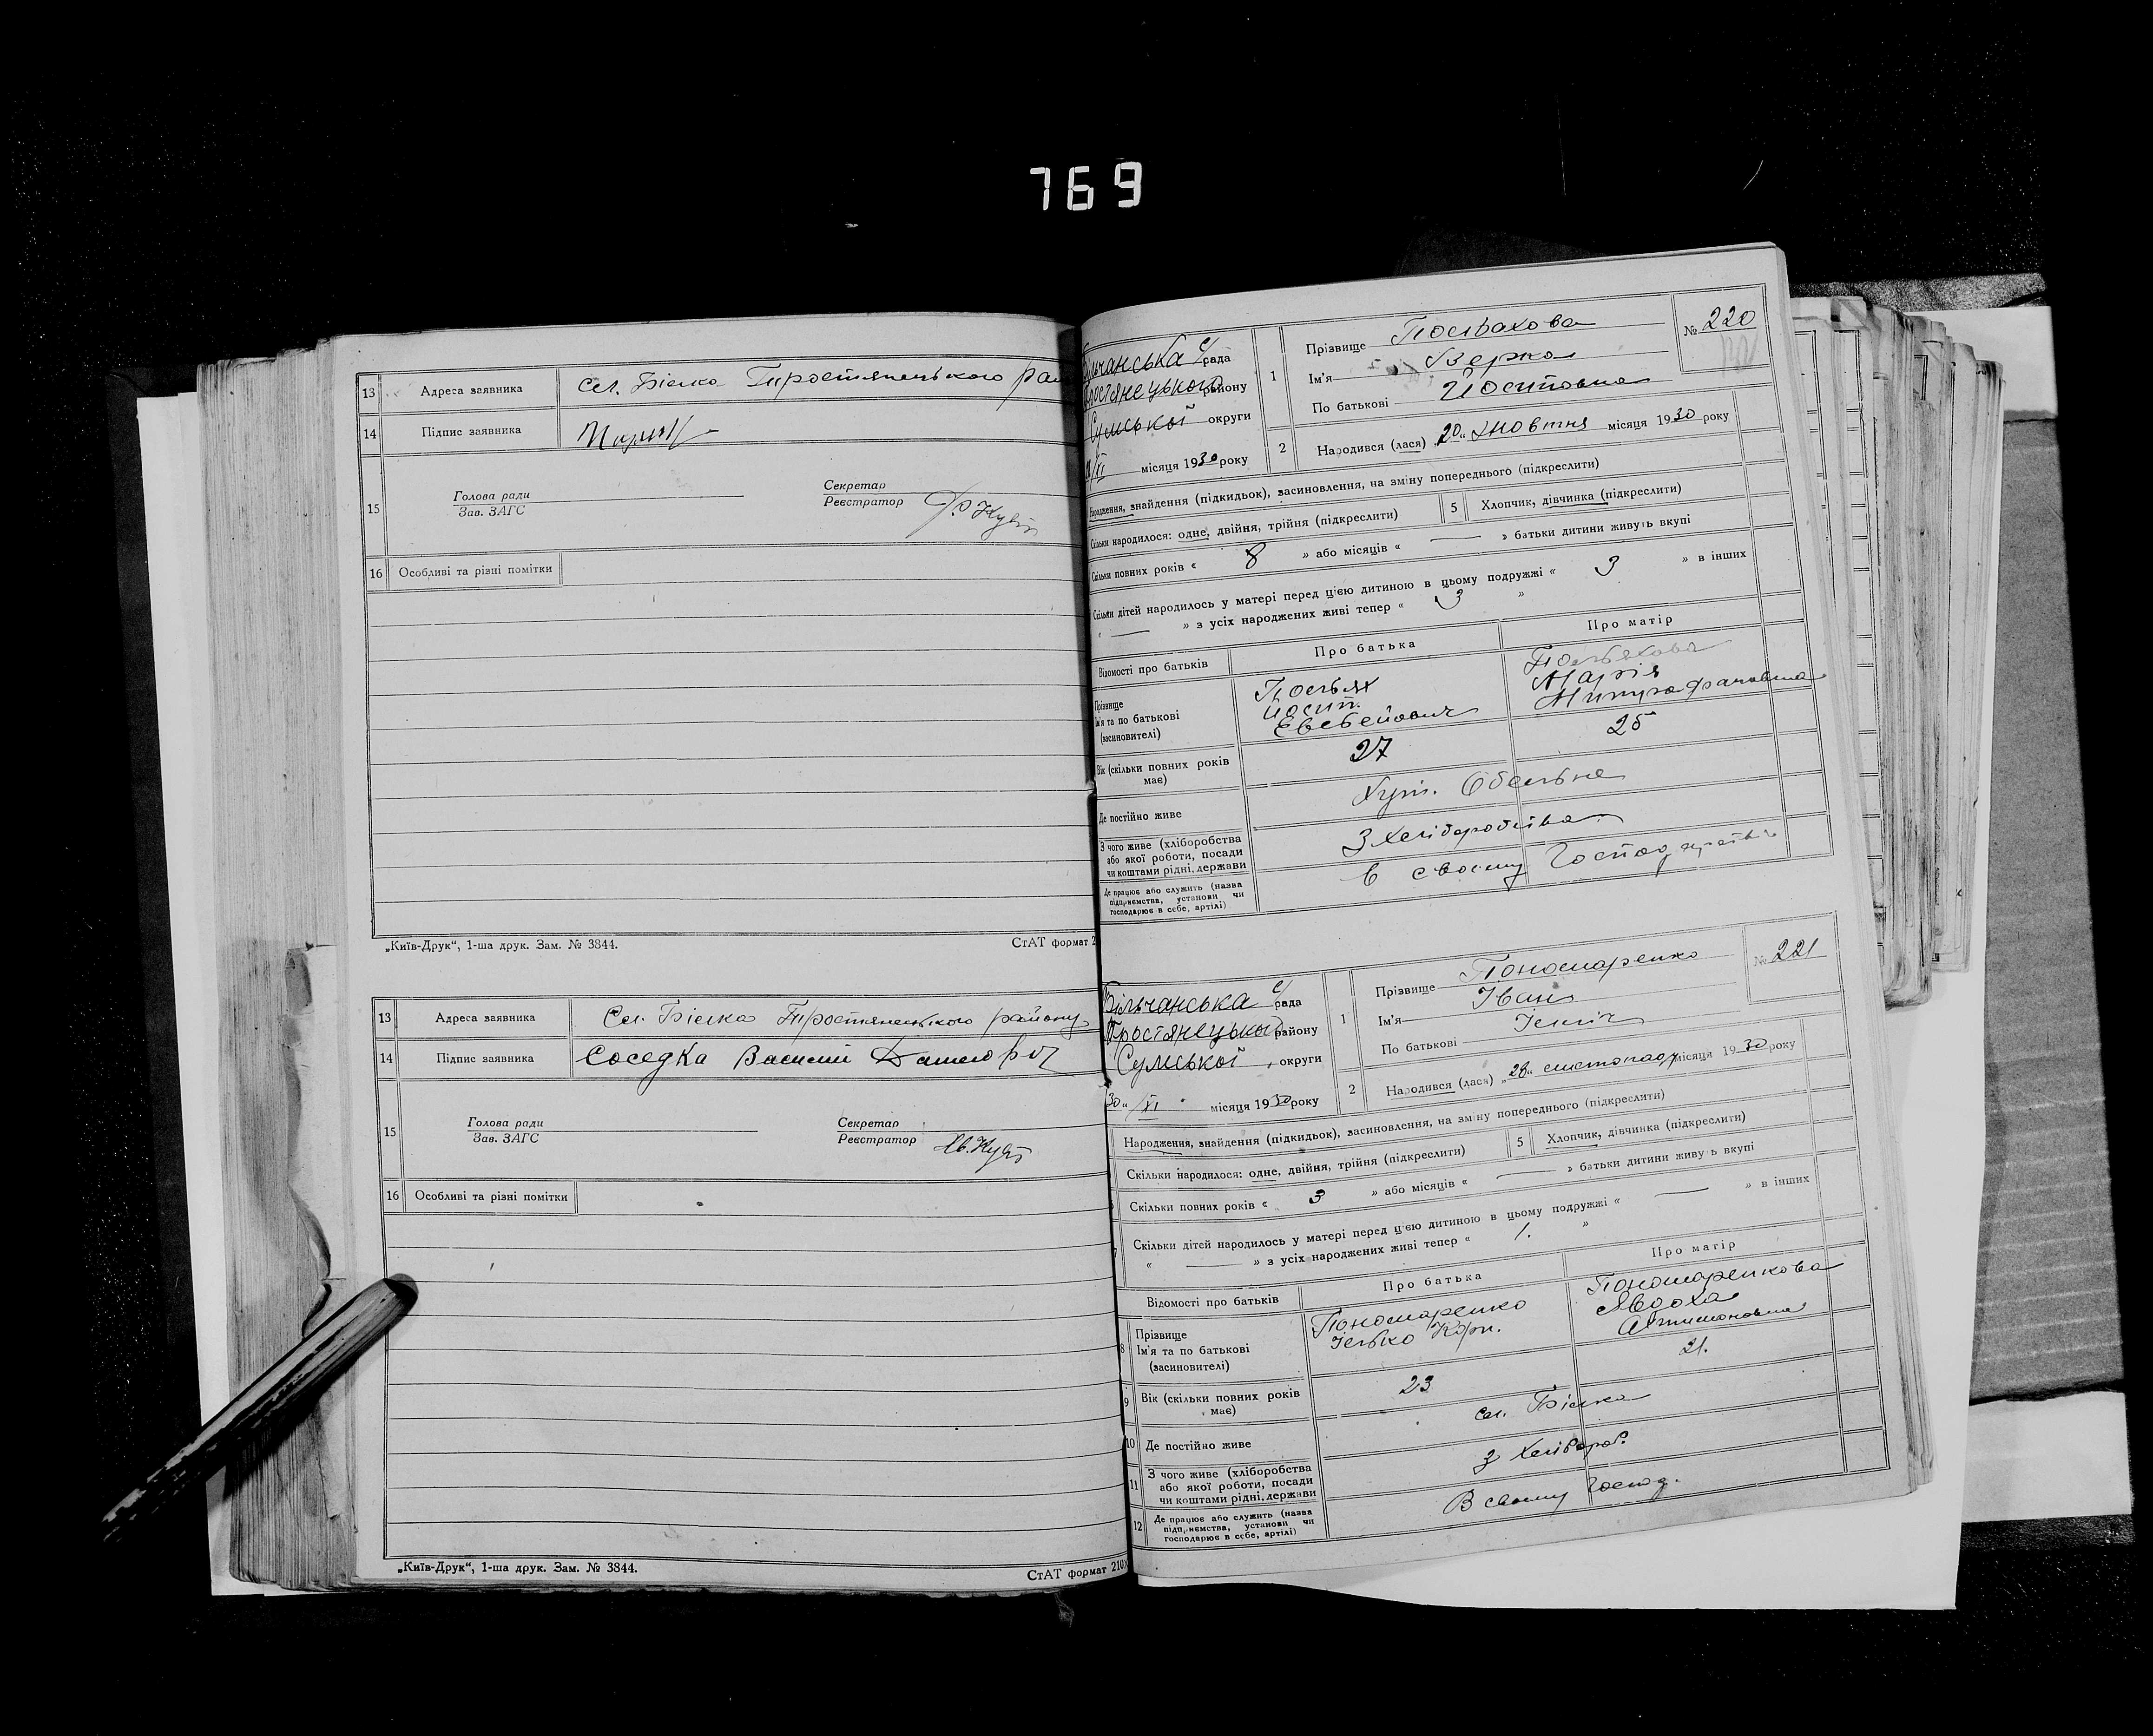 769
13 Адреса заявника сел. Білка Тростянецького
14 Підпис заявника
15 Голова ради
Зав. ЗАГС
Секретар
Реєстратор
16 Особливі та різні помітки
„Київ-Друк“, 1-ша друк. Зам. № 3844. СтАТ формат 2
13 Адреса заявника Сел. Білка Тростянецького району
14 Підпис заявника Соседка Василий
15 Голова ради
Зав. ЗАГС
Секретар
Реєстратор
16 Особливі та різні помітки
„Київ-Друк“, 1-ша друк. Зам. № 3844. СтАТ формат 210
ільчанська с/рада
ростянецького району
Сумської округи
/XI місяця 1930 року
1 Прізвище Польвахова
Ім'я Верка
По батькові Йосиповна
№ 220
2 Народився (лася) „20“ жовтня місяця 1930 року
Народження, знайдення (підкидьок), засиновлення, на зміну попереднього (підкреслити)
Скільки народилося: одне, двійня, трійня (підкреслити) 5 Хлопчик, дівчинка (підкреслити)
Скільки повних років « 8 » або місяців « — » батьки дитини живуть вкупі
Скільки дітей народилось у матері перед цією дитиною в цьому подружжі « 3 » в інших
« — » з усіх народжених живі тепер « 3 »
Відомості про батьків Про батька Про матір
Прізвище
Ім'я та по батькові
(засиновителі)
Йосип
Марія
Вік (скільки повних років має) 27 25
Де постійно живе Хут.
З чого живе (хліборобства або якої роботи, посади чи коштами рідні, держави З хліборобства
Де працює або служить (назва підприємства, установи чи господарює в себе, артілі) в своєму господарстві
Більчанська с/рада
Тростянецького району
Сумської округи
30 „ /XI місяця 1930 року
1 Прізвище Пономаренко
Ім'я Іван
По батькові Ілліч
№ 221
2 Народився (лася) „28“ листопада місяця 1930 року
Народження, знайдення (підкидьок), засиновлення, на зміну попереднього (підкреслити)
Скільки народилося: одне, двійня, трійня (підкреслити) 5 Хлопчик, дівчинка (підкреслити)
Скільки повних років « 3 » або місяців « — » батьки дитини живуть вкупі
Скільки дітей народилось у матері перед цією дитиною в цьому подружжі « — » в інших
« — » з усіх народжених живі тепер « 1. »
Відомості про батьків Про батька Про матір
8 Прізвище
Ім'я та по батькові
(засиновителі)
Пономаренко
Ілько Корп.
Пономаренкова
Явдоха
9 Вік (скільки повних років має) 23 21.
10 Де постійно живе сел. Білка
11 З чого живе (хліборобства або якої роботи, посади чи коштами рідні, держави З хлібороб.
12 Де працює або служить (назва підприємства, установи чи господарює в себе, артілі) В своєму господ.